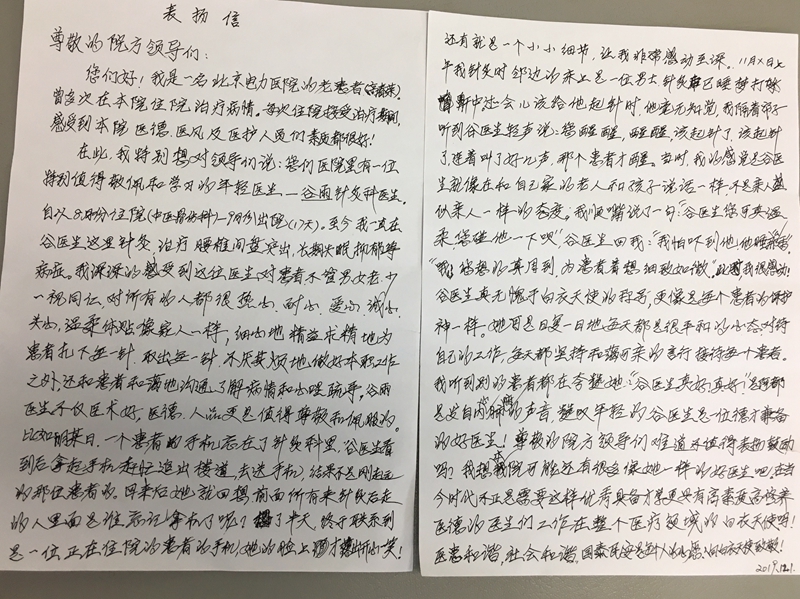 表扬信
尊敬的院方领导们:
您们好!我是一名北京电力医院的老患者
曾多次在本院住院治疗病情。每次住院接受治疗期间,
感受到本院医德、医风及医护人员们素质都很好!
在此,我特别想对领导们说:您们医院里有一位
特别值得敬佩和学习的年轻医生—谷雨针灸科医生。
自从8月份住院(中医骨伤科)—9月份出院(17天)。至今我一直在
谷医生这里针灸治疗腰椎间盘突出、长期失眠抑郁等
病症。我深深的感受到这位医生对患者不管男女老少
一视同仁,对所有的人都很热心、耐心、爱心、诚心、
关心,温柔体贴像家人一样,细心地精益求精地为
患者扎下每一针,取出每一针,不厌其烦地做好本职工作
之外,还和患者和蔼地沟通,了解病情和心理疏导。谷雨
医生不仅医术好,医德、人品更是值得尊敬和佩服的。
比如明某日,一个患者的手机忘在了针灸科里,谷医生看
到后拿起手机赶忙追出楼道,去送手机,结果不是刚走远
的那位患者的。回来后她就回想前面所有来针灸后走
的人里面是谁忘记拿的了呢?了半天,终于联系到
是一位正在住院的患者的手机,她的脸上才!
还有就是一个小小细节,让我非常感动至深。11月X日上
午我针灸时邻边的床上是一位男士针灸已睡梦打
中还会儿该给他起针时,他毫无知觉,我隔着帘子
听到谷医生轻声说:您醒醒,醒醒,该起针了,该起针
了,连着叫了好几声,那个患者才醒。当时,我的感觉是谷医
生就像在和自己家的老人和孩子说话一样,不是亲人胜
似亲人一样的态度。我顺嘴说了一句:“谷医生您可真温
柔,您碰他一下呗”谷医生回我:“我怕吓到他,他睡
“我您想的真周到,为患者着想细致如微”。此时我很感动!
谷医生真无愧于白衣天使的称号,更像是每个患者的保护
神一样。她日复一日地每天都是很平和的心态对待
自己的工作,每天都坚持和蔼可亲的言行接待每个患者。
我听到别的患者都在夸赞她:“谷医生真好,真好!”这都
是发自内心的声音,赞叹年轻的谷医生是位德才兼备
的好医生!尊敬的院方领导们难道不值得表扬鼓励
吗?我想我院可能还有很多像她一样的好医生吧,在当
今时代不正是需要这样优秀具备才华更具有高素质高修养
医德的医生们工作在整个医疗领域的白衣天使吗!
医患和谐,社会和谐,国泰民安是每个人的心愿!向白衣天使致敬!
2019.12.1.